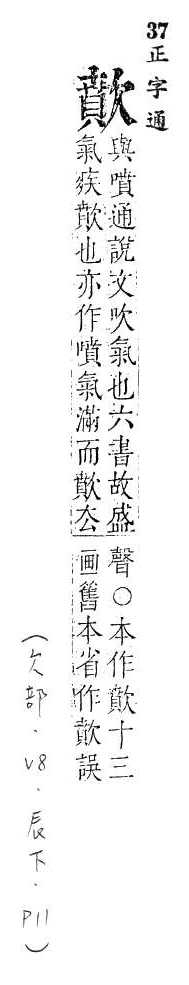 37正字通
歕
與噴通說文吹氣也六書故盛
氣疾歕也亦作噴氣滿而歕厺
聲○本作歕十三
画舊本省作歕誤
（欠部．V8．辰下．P11）